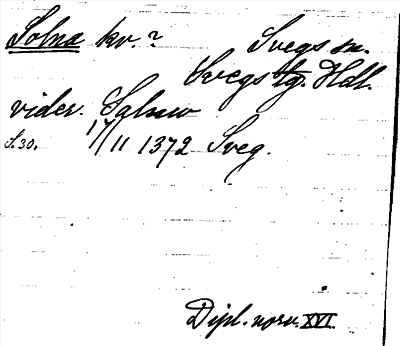 Solna kv.? Svegs sn.
Svegs tg. Hdl.
vider. Salmo
S.30. 17/11 1372 Sveg.
Dipl. norv. XVI